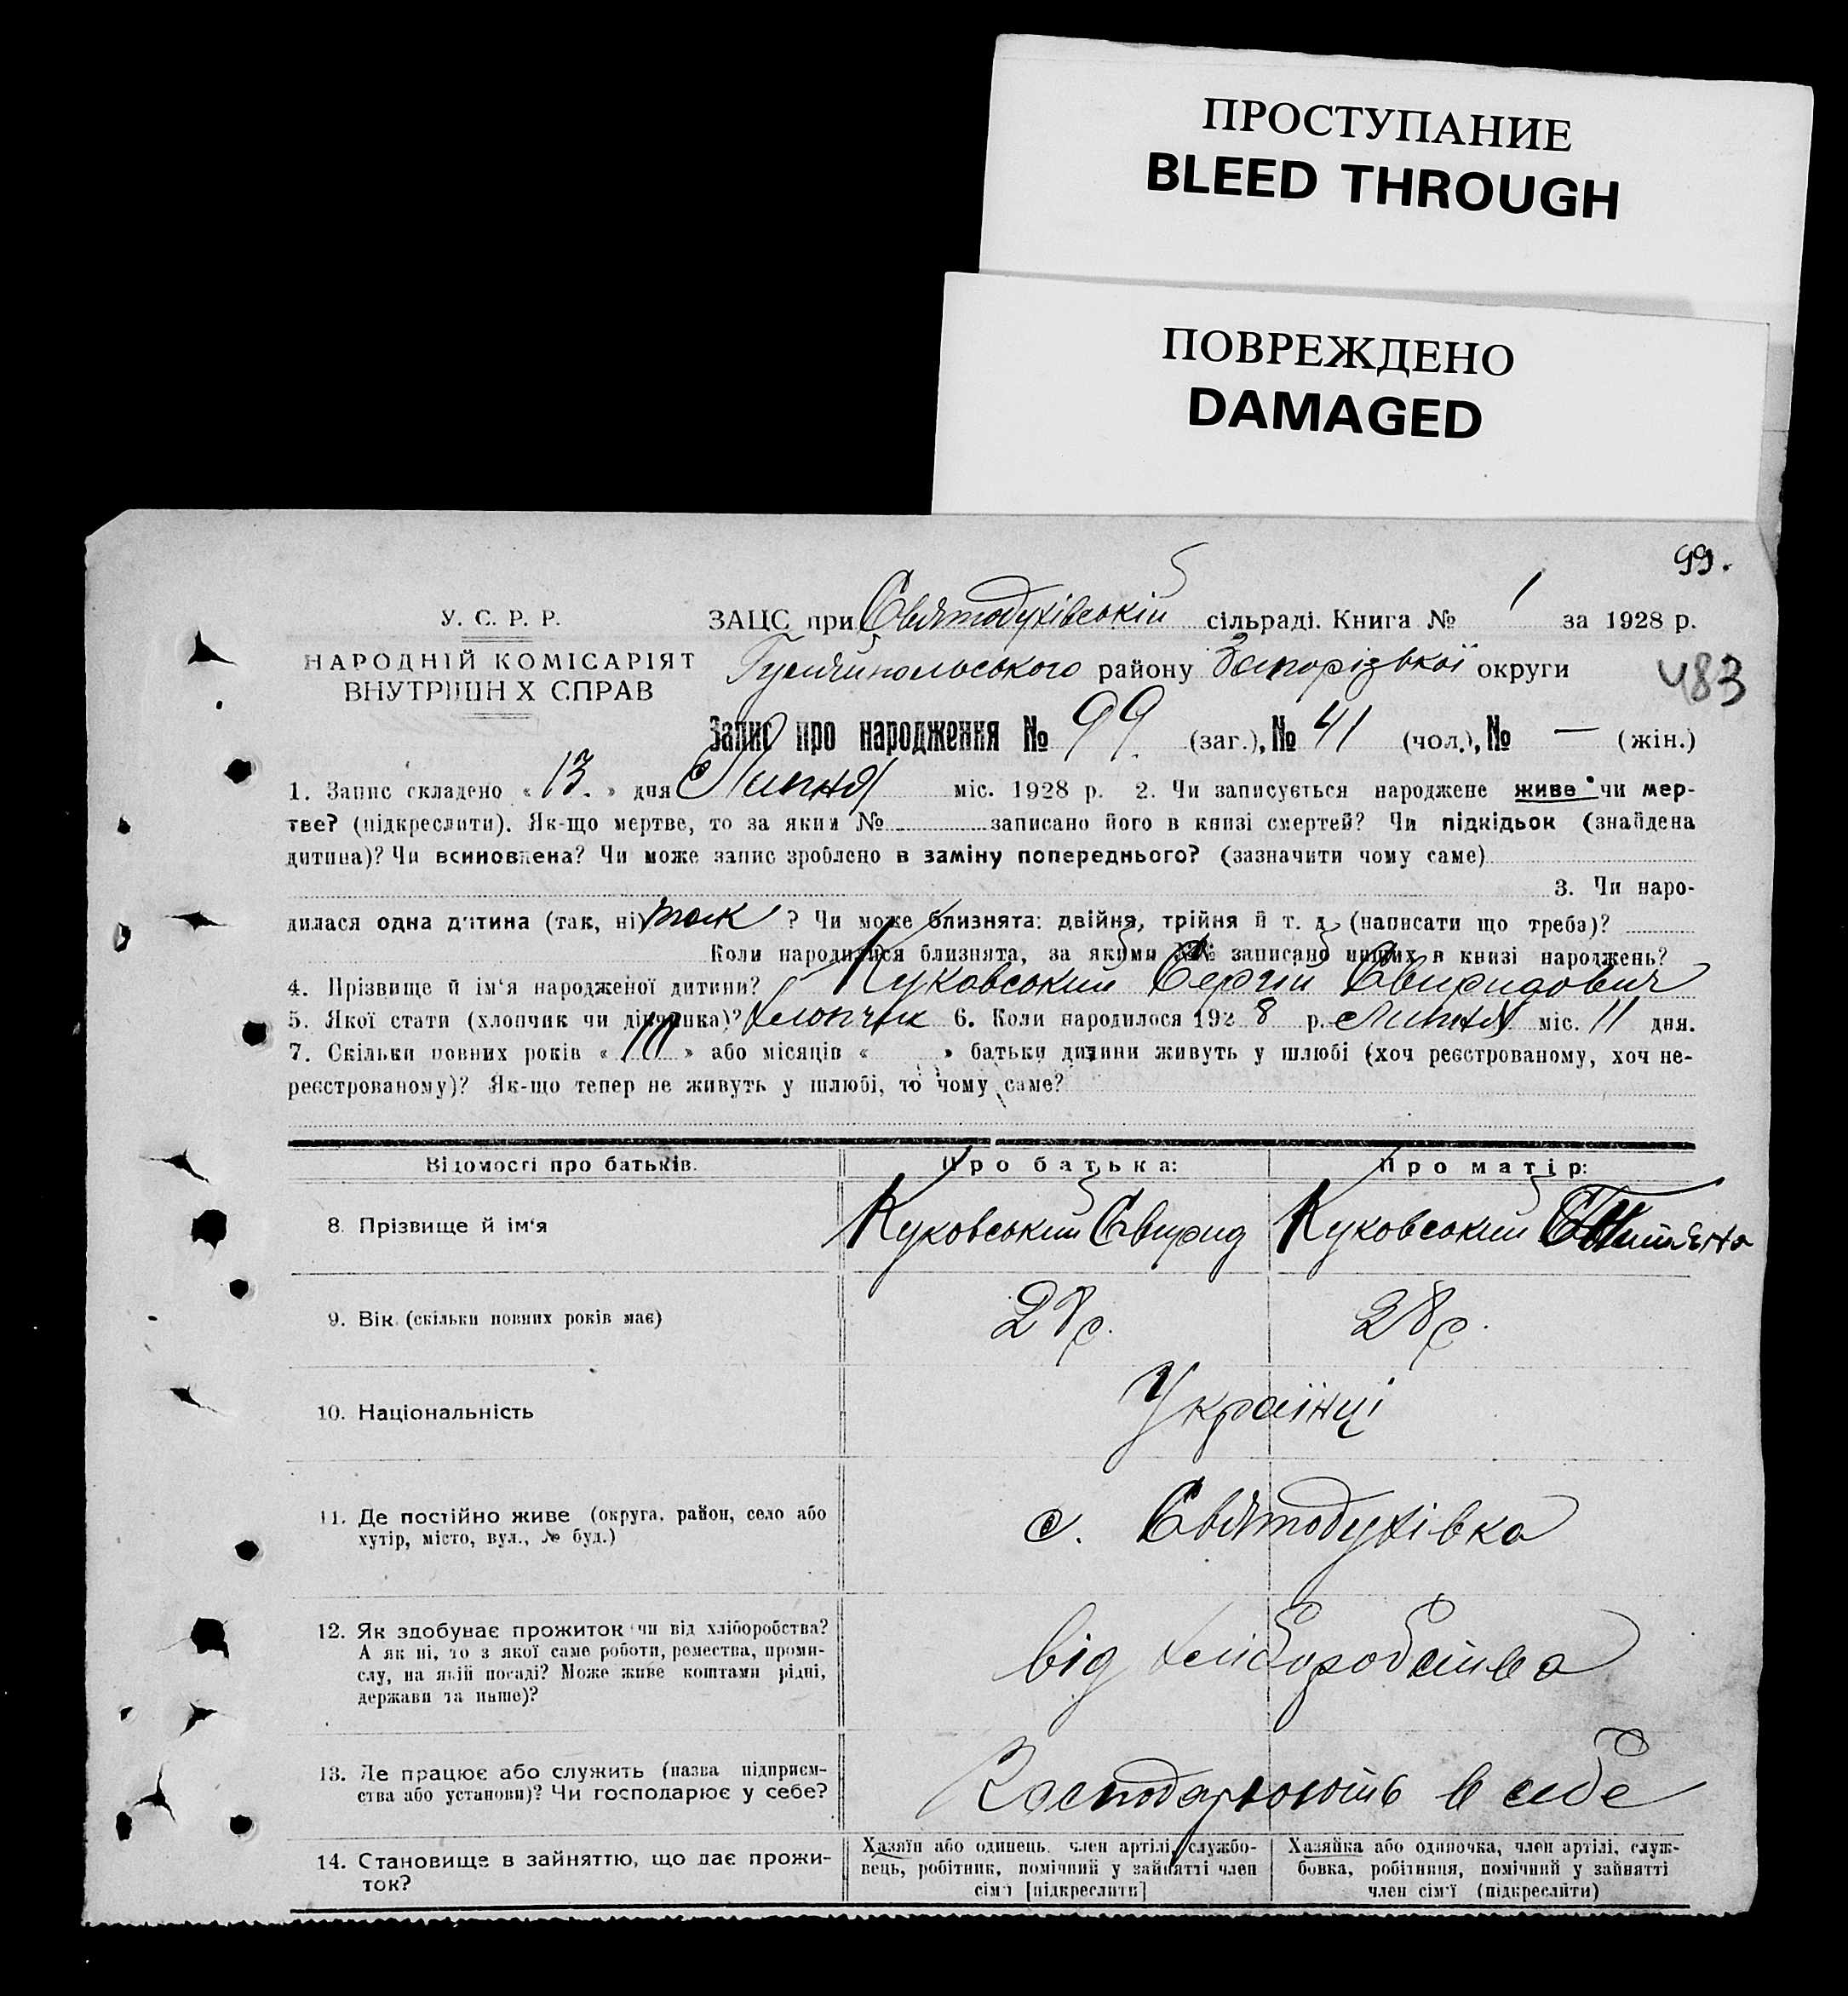 ПРОСТУПАНИЕ
BLEED THROUGH
ПОВРЕЖДЕНО
DAMAGED
99.
У. С. Р. Р.
НАРОДНІЙ КОМІСАРІЯТ
ВНУТРІШН Х СПРАВ
ЗАЦС при Святодухівській сільраді. Книга № 1 за 1928 р.
району Запорізької округи
483
Запис про народження № 99 (заг.), № 41 (чол.), № — (жін.)
1. Запис складено « 13. » дня Липня міс. 1928 р. 2. Чи записується народжене живе чи мер-
тве? (підкреслити). Як-що мертве, то за яким № записано його в книзі смертей? Чи підкідьок (знайдена
дитина)? Чи всиновлена? Чи може запис зроблено в заміну попереднього? (зазначити чому саме)
3. Чи наро-
дилася одна дитина (так, ні) так ? Чи може близнята: двійня, трійня й т. д. (написати що треба)?
Коли народилися близнята, за якими №№ записано инших в книзі народжень?
4. Прізвище й ім'я народженої дитини? Куковський Сергій Свиридович
5. Якої стати (хлопчик чи дівчинка)? Хлопчик 6. Коли народилося 1928 р. Липня міс. 11 дня.
7. Скільки повних років « 10 » або місяців « » батьки дитини живуть у шлюбі (хоч реєстрованому, хоч не-
реєстрованому)? Як-що тепер не живуть у шлюбі, то чому саме?
Відомості про батьків.
Про батька:
Про матір:
8. Прізвище й ім'я
Куковський Свирид
Куковський
9. Вік (скільки повних років має)
28 р.
28 р.
10. Національність
Українці
11. Де постійно живе (округа, район, село або
хутір, місто, вул., № буд.)
с. Святодухівка
12. Як здобуває прожиток чи від хліборобства?
А як ні, то з якої саме роботи, ремества, проми-
слу, на якій посаді? Може живе коштами рідні,
держави та инше)?
від хліборобства
13. Де працює або служить (назва підприєм-
ства або установи)? Чи господарює у себе?
Господарюють в себе
14. Становище в зайняттю, що дає прожи-
ток?
Хазяїн або одинець, член артілі, службо-
вець, робітник, помічний у зайнятті член
сім'ї [підкреслити]
Хазяйка або одиночка, член артілі, служ-
бовка, робітниця, помічний у зайнятті
член сім'ї (підкреслити)